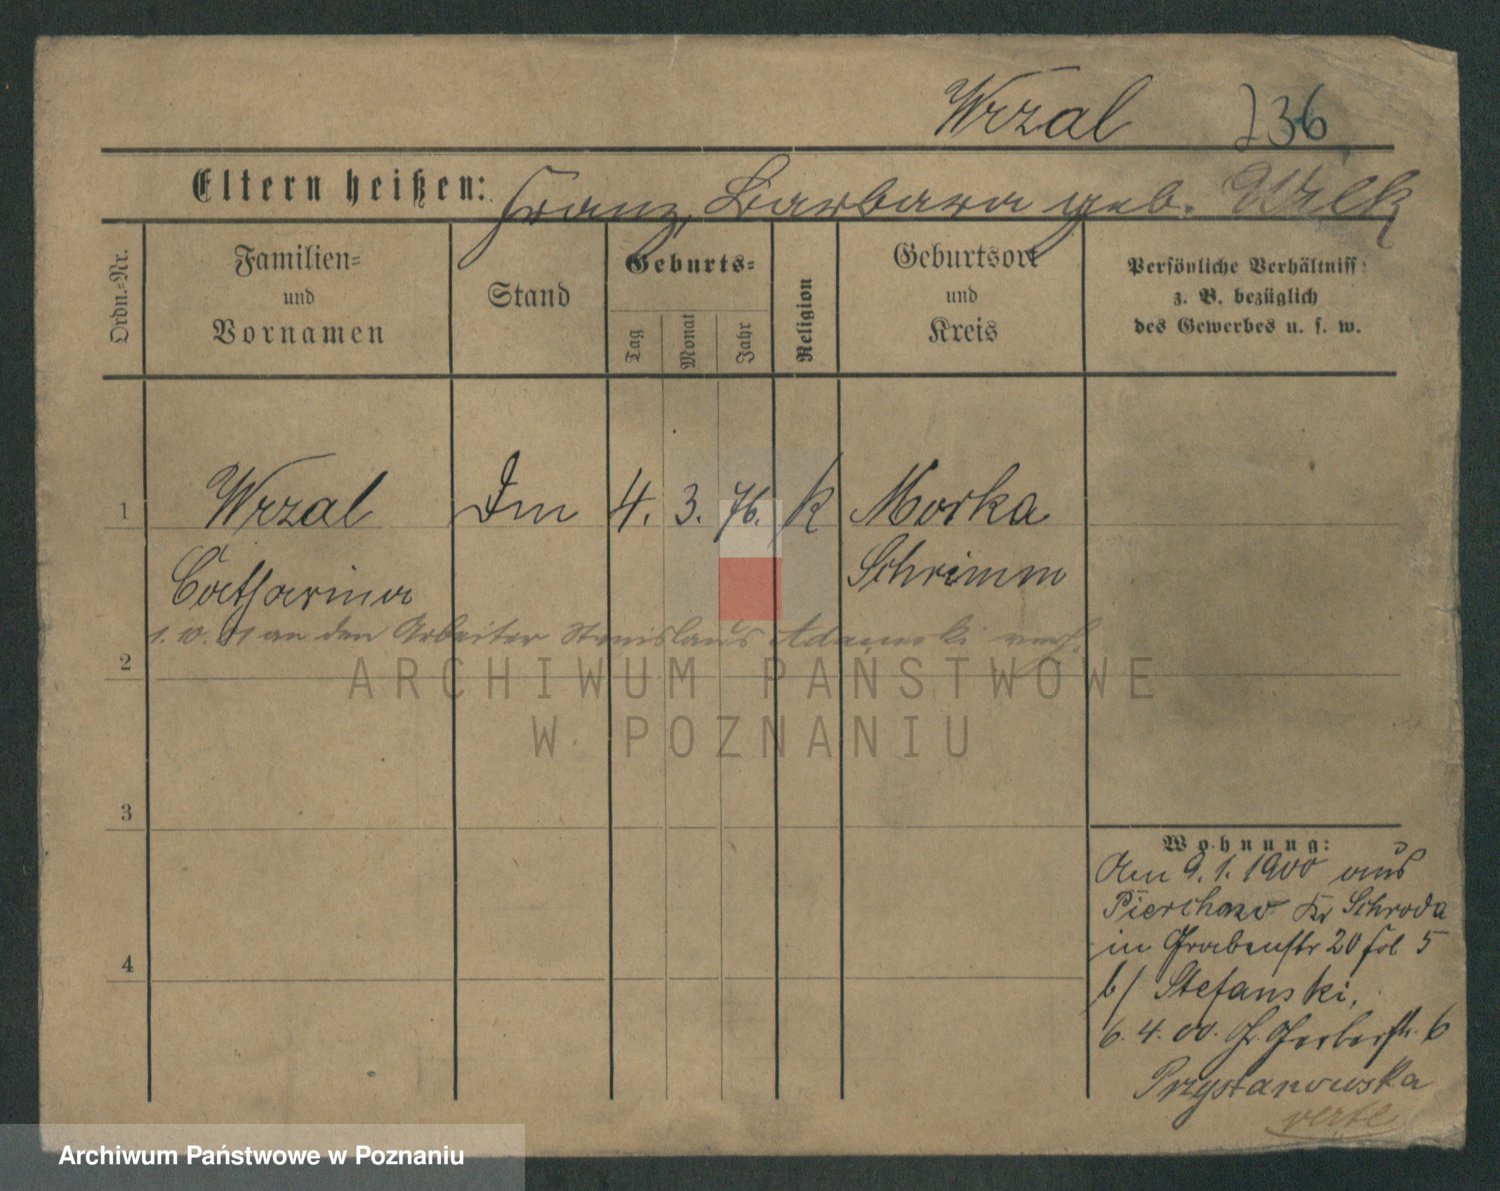 Wrzal 736
Eltern heißen: Franz, Barbara geb. Wilk
Ordn.-Nr.
Familien-
und
Vornamen
Stand
Geburts-
Tag
Monat
Jahr
Religion
Geburtsort
und
Kreis
Persönliche Verhältniss
z. B. bezüglich
des Gewerbes u. s. w.
1 Wrzal Dm 4. 3. 76. k Morka
Catharina Schrimm
an den Arbeiter Stanislaus Adamski verh.
2
3
4
Wohnung:
Am 9. 1. 1900 aus
Pierchno Kr Schroda
in Grabenstr 20 fol 5
b/ Stefanski,
6. 4. 00. Gr Gerberstr. 6
Przystanowska
verte
ARCHIWUM PAŃSTWOWE
W POZNANIU
Archiwum Państwowe w Poznaniu